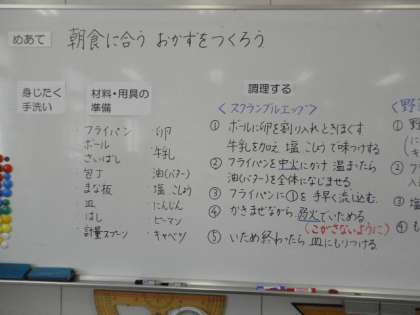 めあて
朝食に合う おかずをつくろう
身じたく
手洗い
材料・用具の
準備
フライパン
ボール
さいばし
包丁
まな板
皿
はし
計量スプーン
卵
牛乳
油(バター)
塩 こしょう
にんじん
ピーマン
キャベツ
調理する
<スクランブルエッグ>
① ボールに卵を割り入れときほぐす
牛乳を加え 塩 こしょうで味つける
② フライパンを中火にかけ 温まったら
油(バター)を全体になじませる
③ フライパンに①を 手早く流し込む
④ かきまぜながら 弱火でいためる
(こがさないように)
⑤ いため終わったら 皿にもりつける
<野
① 野
② フ
③ 塩
④ も